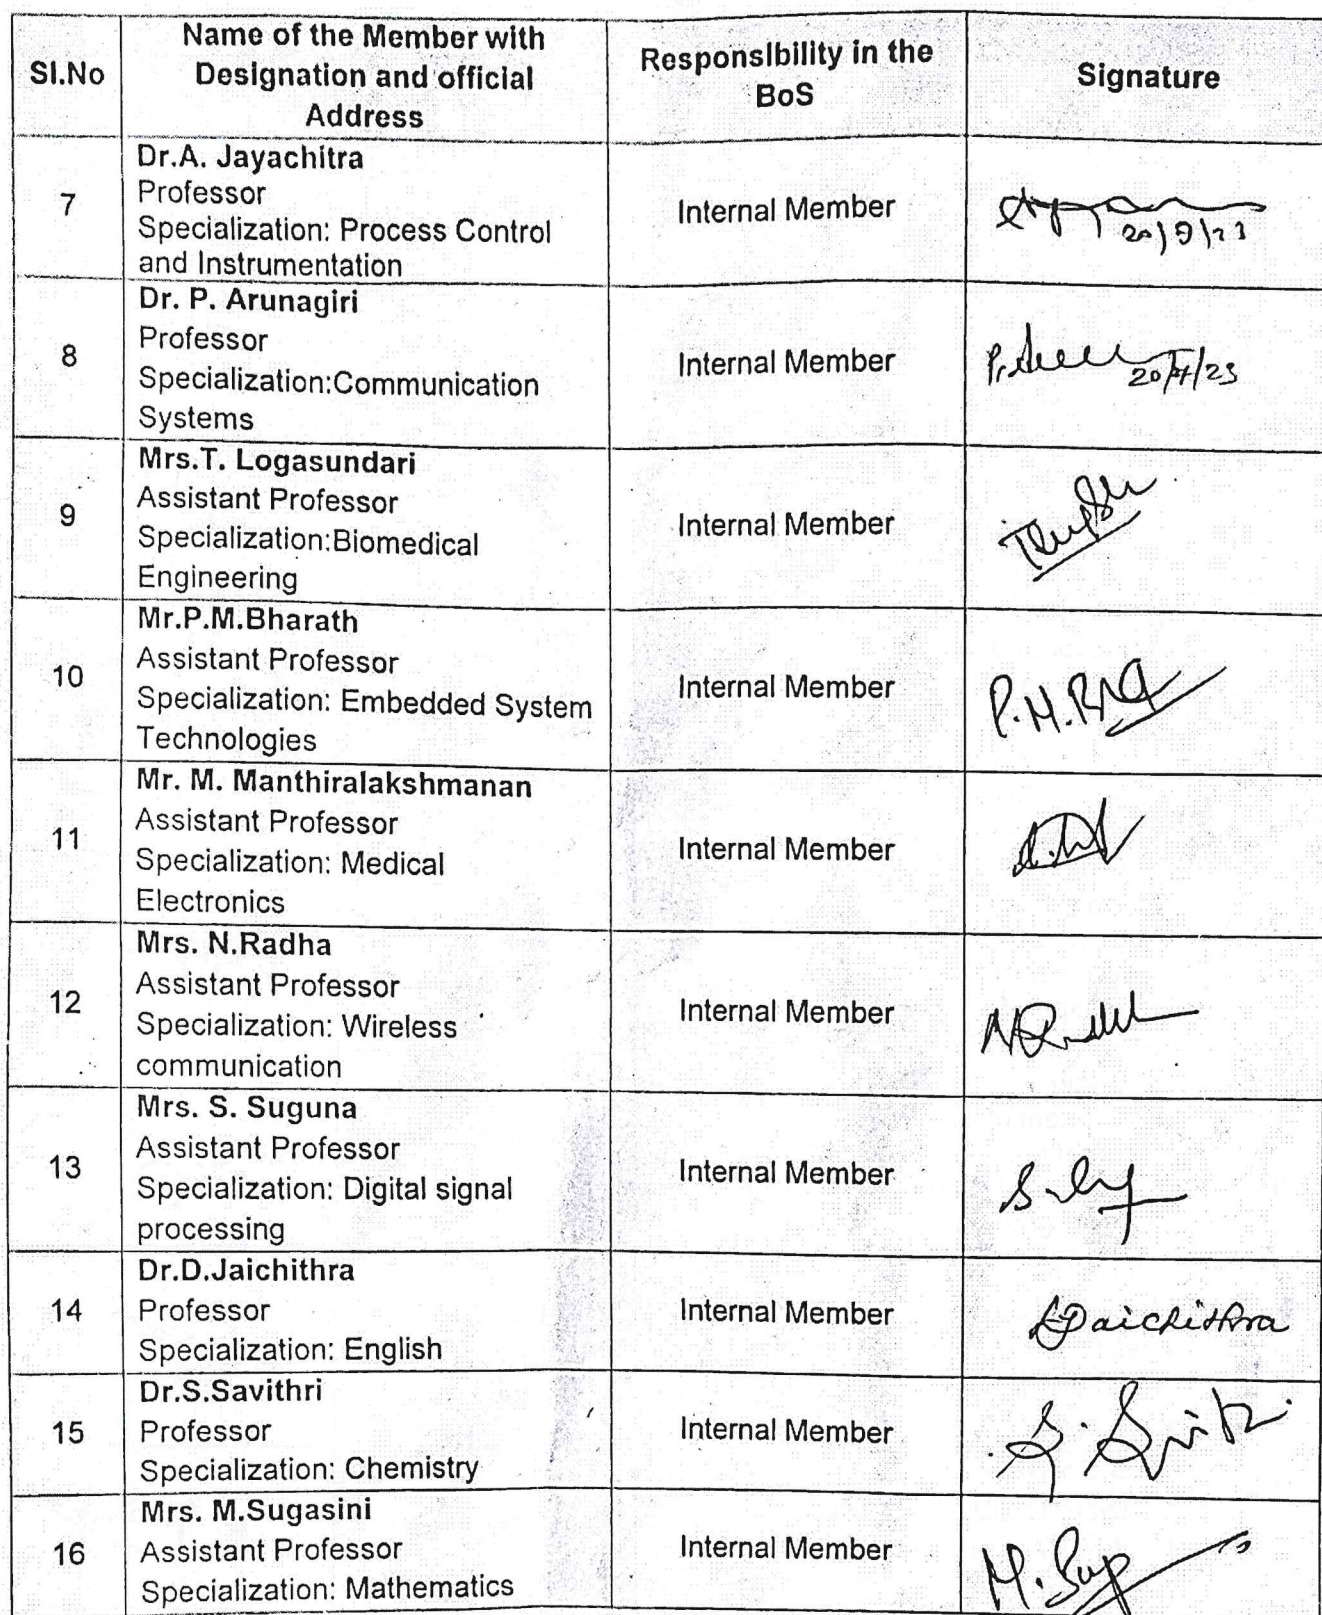 Sl.No
Name of the Member with
Designation and official
Address
Responsibility in the
BoS
Signature
7
Dr.A. Jayachitra
Professor
Specialization: Process Control
and Instrumentation
Internal Member
8
Dr. P. Arunagiri
Professor
Specialization:Communication
Systems
Internal Member
9
Mrs.T. Logasundari
Assistant Professor
Specialization:Biomedical
Engineering
Internal Member
10
Mr.P.M.Bharath
Assistant Professor
Specialization: Embedded System
Technologies
Internal Member
11
Mr. M. Manthiralakshmanan
Assistant Professor
Specialization: Medical
Electronics
Internal Member
12
Mrs. N.Radha
Assistant Professor
Specialization: Wireless
communication
Internal Member
13
Mrs. S. Suguna
Assistant Professor
Specialization: Digital signal
processing
Internal Member
14
Dr.D.Jaichithra
Professor
Specialization: English
Internal Member
DJaichithra
15
Dr.S.Savithri
Professor
Specialization: Chemistry
Internal Member
16
Mrs. M.Sugasini
Assistant Professor
Specialization: Mathematics
Internal Member